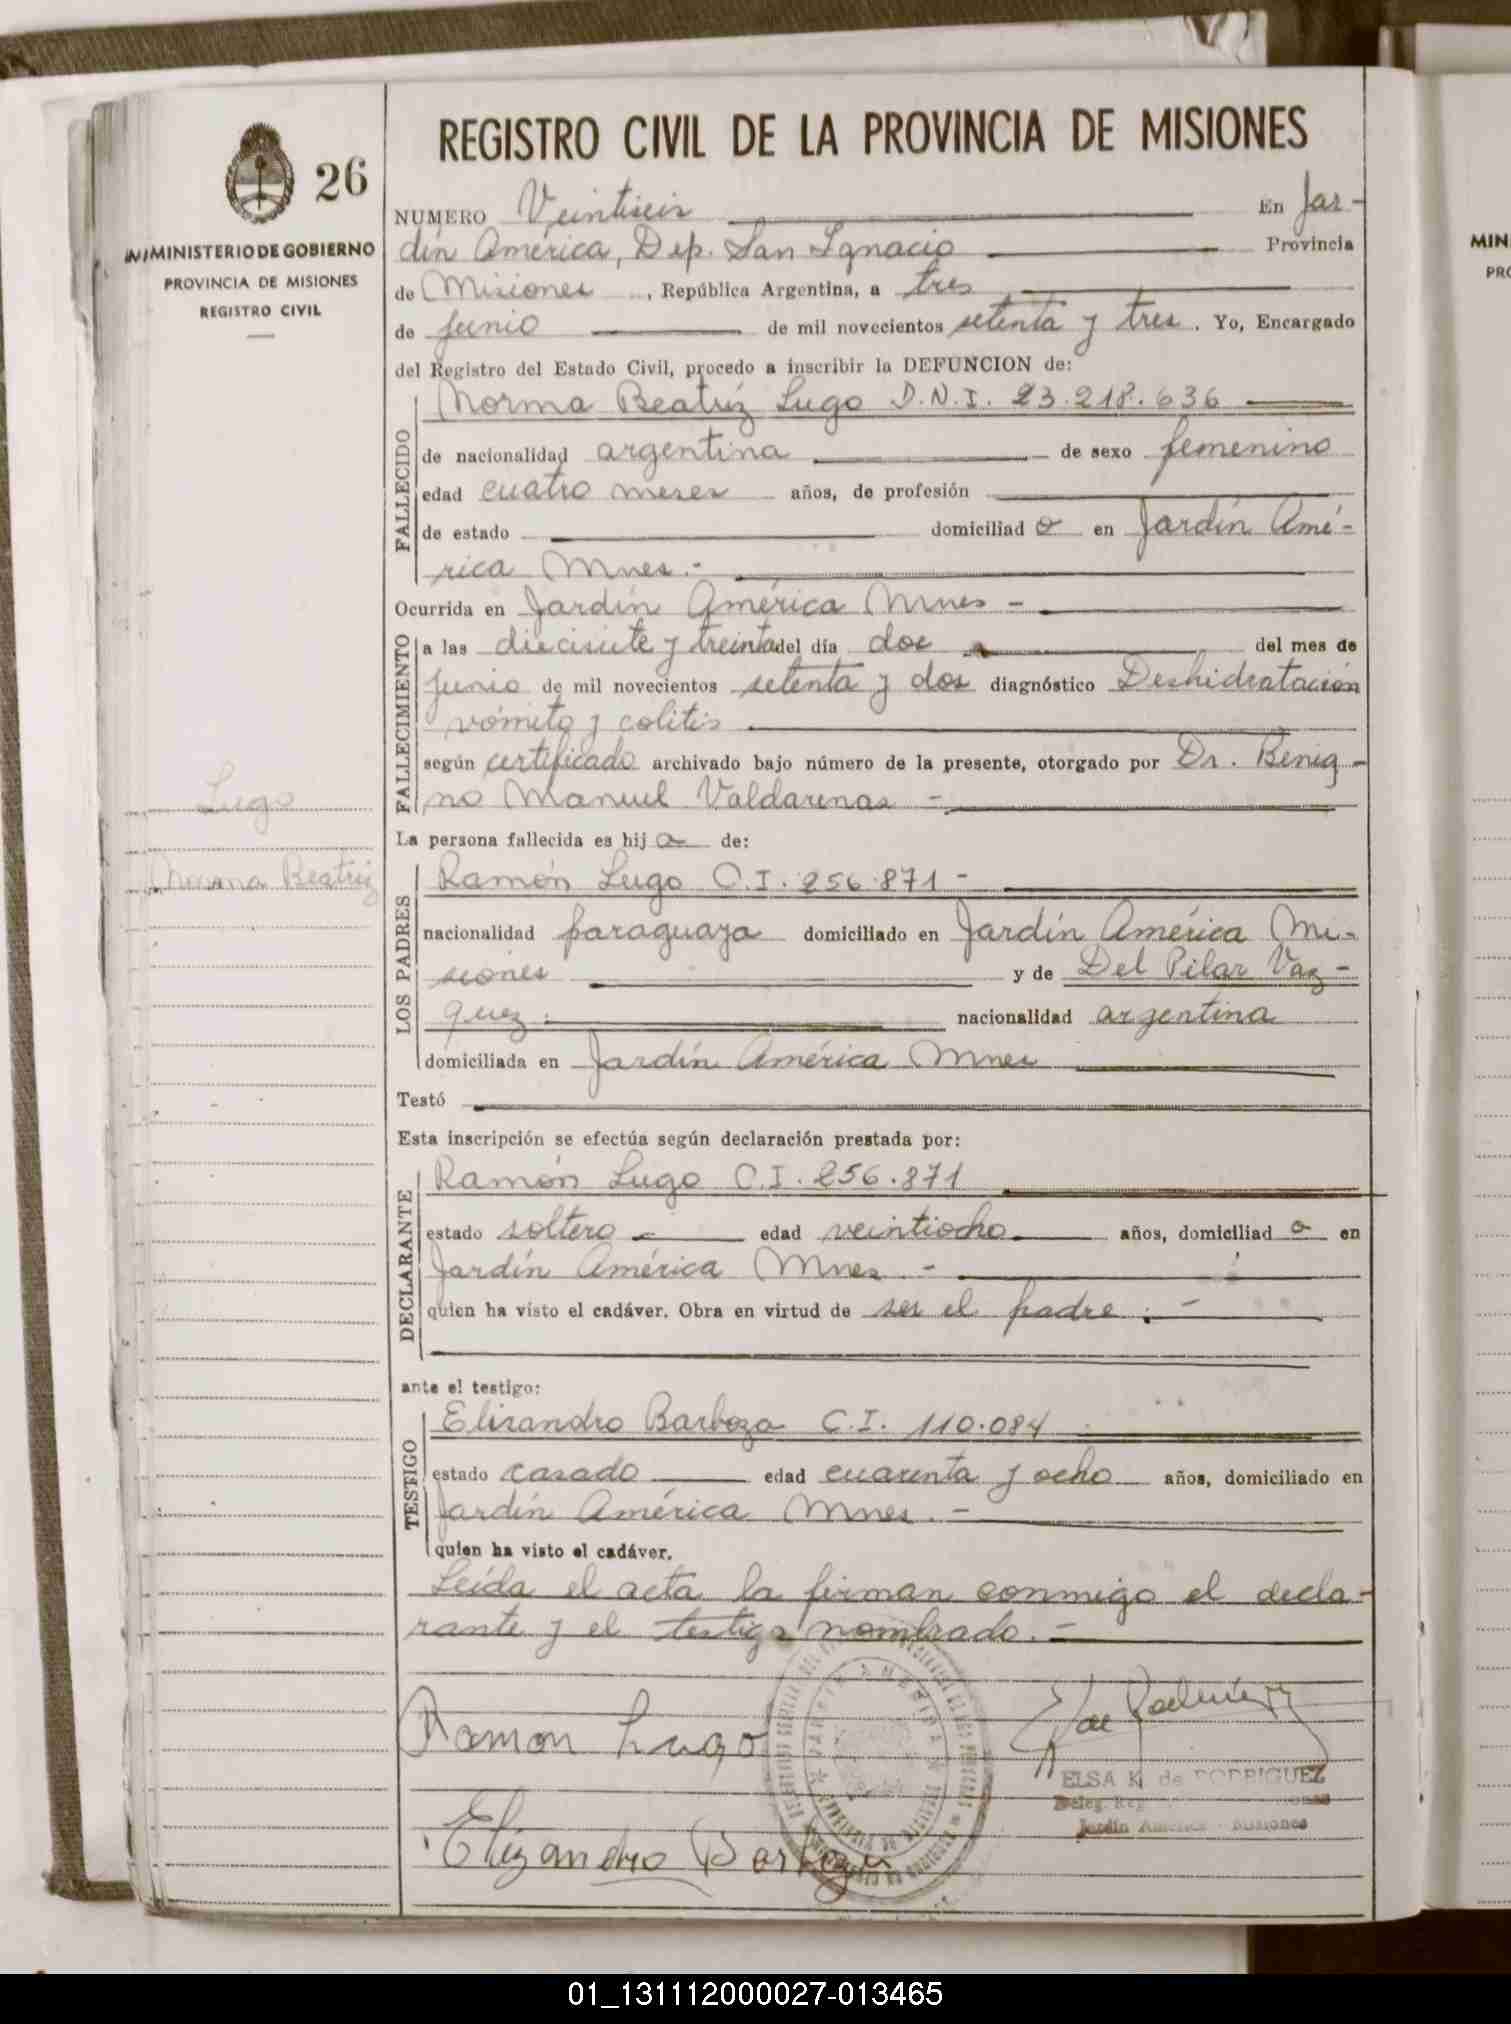 REGISTRO CIVIL DE LA PROVINCIA DE MISIONES
26
MINISTERIO DE GOBIERNO
PROVINCIA DE MISIONES
REGISTRO CIVIL
NUMERO Veintiseis En Jar-
dín América, Dep. San Ignacio Provincia
de Misiones, República Argentina, a tres
de junio de mil novecientos setenta y tres. Yo, Encargado
del Registro del Estado Civil, procedo a inscribir la DEFUNCION de:
FALLECIDO
Norma Beatríz Lugo D.N.I. 23.218.636
de nacionalidad argentina de sexo femenino
edad cuatro meses años, de profesión
de estado domiciliad o en Jardín Amé-
rica Mnes.-
Ocurrida en Jardín América Mnes -
FALLECIMIENTO
a las diecisiete y treinta del día dos del mes de
junio de mil novecientos setenta y dos diagnóstico Deshidratación
vómito y colitis
según certificado archivado bajo número de la presente, otorgado por Dr. Benig-
no Manuel Valdarenas -
Lugo
Norma Beatriz
La persona fallecida es hij a de:
LOS PADRES
Ramón Lugo C.I. 256.871 -
nacionalidad paraguaya domiciliado en Jardín América Mi-
siones y de Del Pilar Vaz-
quez. nacionalidad argentina
domiciliada en Jardín América Mnes
Testó
Esta inscripción se efectúa según declaración prestada por:
DECLARANTE
Ramón Lugo C.I. 256.871
estado soltero edad veintiocho años, domiciliad o en
Jardín América Mnes -
quien ha visto el cadáver. Obra en virtud de ser el padre.-
ante el testigo:
TESTIGO
Elisandro Barboza C.I. 110.084
estado casado edad cuarenta y ocho años, domiciliado en
Jardín América Mnes. -
quien ha visto el cadáver.
Leída el acta la firman conmigo el decla-
rante y el testigo nombrado.-
Ramon Lugo
ELSA K. de RODRIGUEZ
Deleg. Reg.
Jardín América - Misiones
Elizandro Barboza
MIN
PRO
01_131112000027-013465